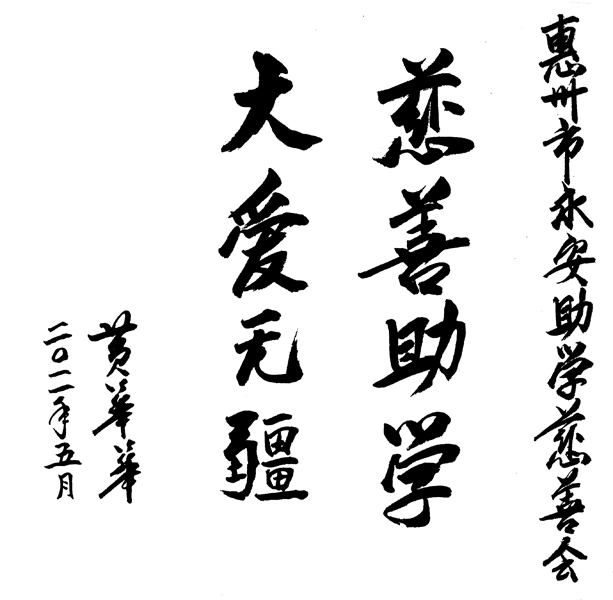 惠州市永安助学慈善会
慈善助学
大爱无疆
黄华华
二〇一一年五月